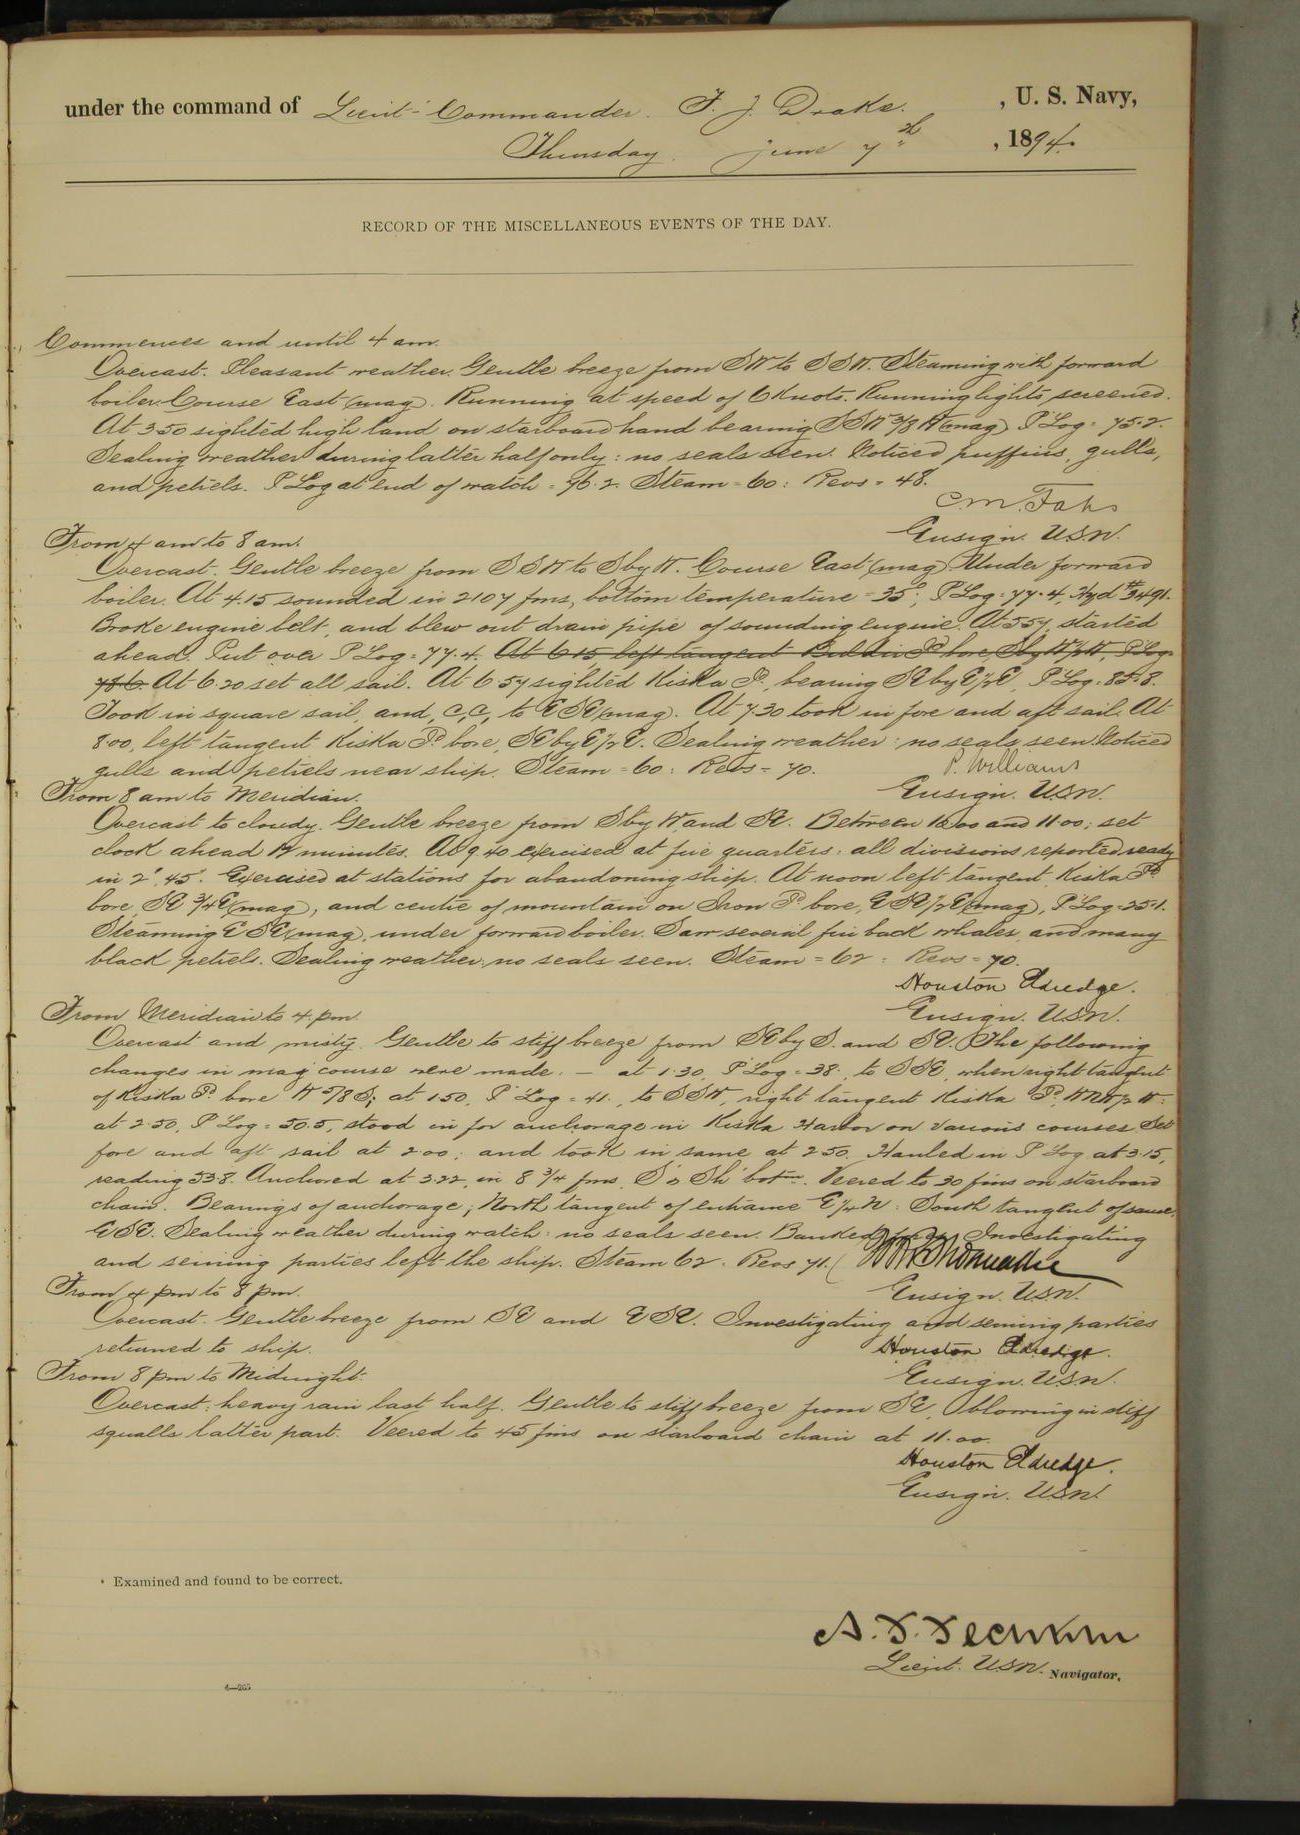 under the command of Lieut-Commander. F. J. Drake. , U. S. Navy,
Thursday. June 7th , 1894.
RECORD OF THE MISCELLANEOUS EVENTS OF THE DAY.
Commences and until 4 am.
Overcast. Pleasant weather. Gentle breeze from SW to SSW. Steaming with forward
boiler. Course East (mag). Running at speed of 6 Knots. Running lights screened.
At 3.50 sighted high land on starboard hand bearing SSW 3/8 W (mag) P Log = 75.2.
Sealing weather during latter half only: no seals seen. Noticed puffins, gulls,
and petrels. P Log at end of watch = 76.2. Steam = 60: Revs = 48.
C. M. Fahs
Ensign. USN.
From 4 am to 8 am.
Overcast. Gentle breeze from SSW to S by W. Course East (mag) Under forward
boiler. At 4.15 sounded in 2107 fms, bottom temperature = 35°; P Log = 77.4, Hyd # 3491.
Broke engine belt, and blew out drain pipe of sounding engine. At 5 54 started
ahead. Put over P Log = 77.4. At 6 15, left tangent Buldir Id bore, S by W 1/2 W, P Log
78.6. At 6.20 set all sail. At 6 54 sighted Kiska Id, bearing SE by E 1/2 E, P Log = 85.8.
Took in square sail, and, C,C, to ESE (mag). At 7.30 took in fore and aft sail. At
8.00, left tangent Kiska Id bore, SE by E 1/2 E. Sealing weather: no seals seen. Noticed
gulls and petrels near ship. Steam = 60: Revs = 70.
P. Williams
Ensign. USN.
From 8 am to Meridian.
Overcast to cloudy. Gentle breeze from S by W and SE. Between 10.00 and 11.00; set
clock ahead 14 minutes. At 9.40 exercised at fire quarters: all divisions reported ready
in 2' 45". Exercised at stations for abandoning ship. At noon left tangent Kiska Id
bore, SE 3/4 E (mag), and centre of mountain on Iron Id bore, ESE 1/2 E (mag), P Log = 25.1.
Steaming ESE (mag), under forward boiler. Saw several fin back whales and many
black petrels. Sealing weather, no seals seen. Steam = 62: Revs = 70.
Houston Eldredge.
Ensign. USN.
From Meridian to 4 pm.
Overcast and misty. Gentle to stiff breeze from SE by S. and SE. The following
changes in mag course were made: — at 1.30, P Log = 38., to SSE, when right tangent
of Kiska Id bore W 5/8 S; at 1 50, P Log = 41., to SSW, right tangent Kiska Id, WNW 1/2 W:
at 2.50, P Log = 50.5, stood in for anchorage in Kiska Harbor on various courses. Set
fore and aft sail at 2.00; and took in same at 2 50. Hauled in P Log at 3.15,
reading 53.8. Anchored at 3.22, in 8 3/4 fms, S & Sh bottm. Veered to 30 fms on starboard
chain. Bearings of anchorage; North tangent of entrance E 1/4 N: South tangent of same,
ESE. Sealing weather during watch: no seals seen. Banked fires. Investigating
and seining parties left the ship. Steam 62. Revs 71.
Ensign. USN.
From 4 pm to 8 pm.
Overcast. Gentle breeze from SE and ESE. Investigating and seining parties
returned to ship.
Houston Eldredge.
Ensign. USN.
From 8 pm to Midnight.
Overcast, heavy rain last half. Gentle to stiff breeze from SE, blowing in stiff
squalls latter part. Veered to 45 fms on starboard chain at 11.00.
Houston Eldredge.
Ensign. USN.
Examined and found to be correct.
Lieut. USN. Navigator.